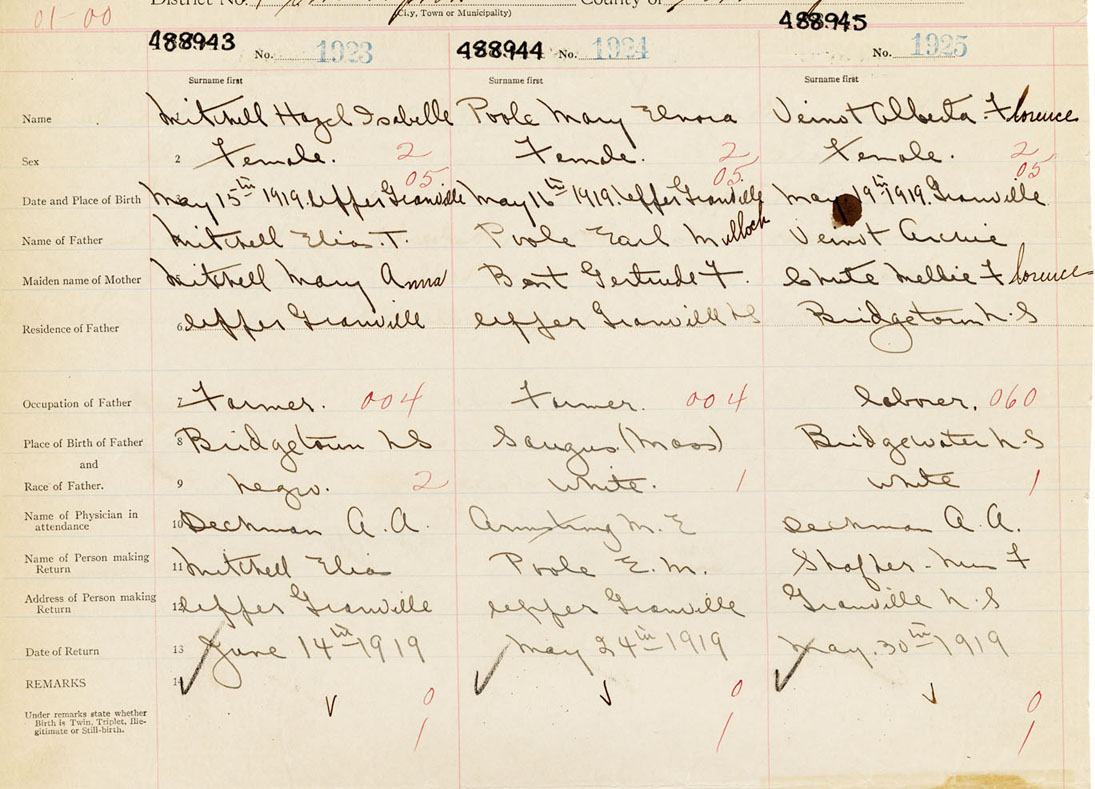 01-00 District No. County of
(City, Town or Municipality)
488943 No. 1923 488944 No. 1924 488945 No. 1925
Surname first Surname first Surname first
Name Mitchell Hazel Isabelle Poole Mary Elnora Veinot Alberta Florence
Sex 2 Female. 2 Female. 2 Female. 2
05 05 05
Date and Place of Birth May 15th 1919. Upper Granville May 16th 1919. Upper Granville May 19th 1919. Granville
Name of Father Mitchell Elias. T. Poole Earl Mullock Veinot Archie
Maiden name of Mother Mitchell Mary Anna Bent Gertrude F. White Nellie Florence
Residence of Father 6 Upper Granville Upper Granville NS Bridgetown N.S
Occupation of Father 7 Farmer. 004 Farmer. 004 Laborer. 060
Place of Birth of Father 8 Bridgetown NS Saugus (Mass) Bridgewater N-S
and
Race of Father. 9 Negro. 2 White. 1 White 1
Name of Physician in
attendance 10 Deckman A. A. Armstrong M. E Deckman A. A.
Name of Person making
Return 11 Mitchell Elias Poole E. M. F
Address of Person making
Return 12 Upper Granville Upper Granville Granville N.S
Date of Return 13 June 14th 1919 May 24th 1919 May. 30th 1919
REMARKS 14
0 0 0
Under remarks state whether
Birth is Twin, Triplet, Ille-
gitimate or Still-birth. 1 1 1